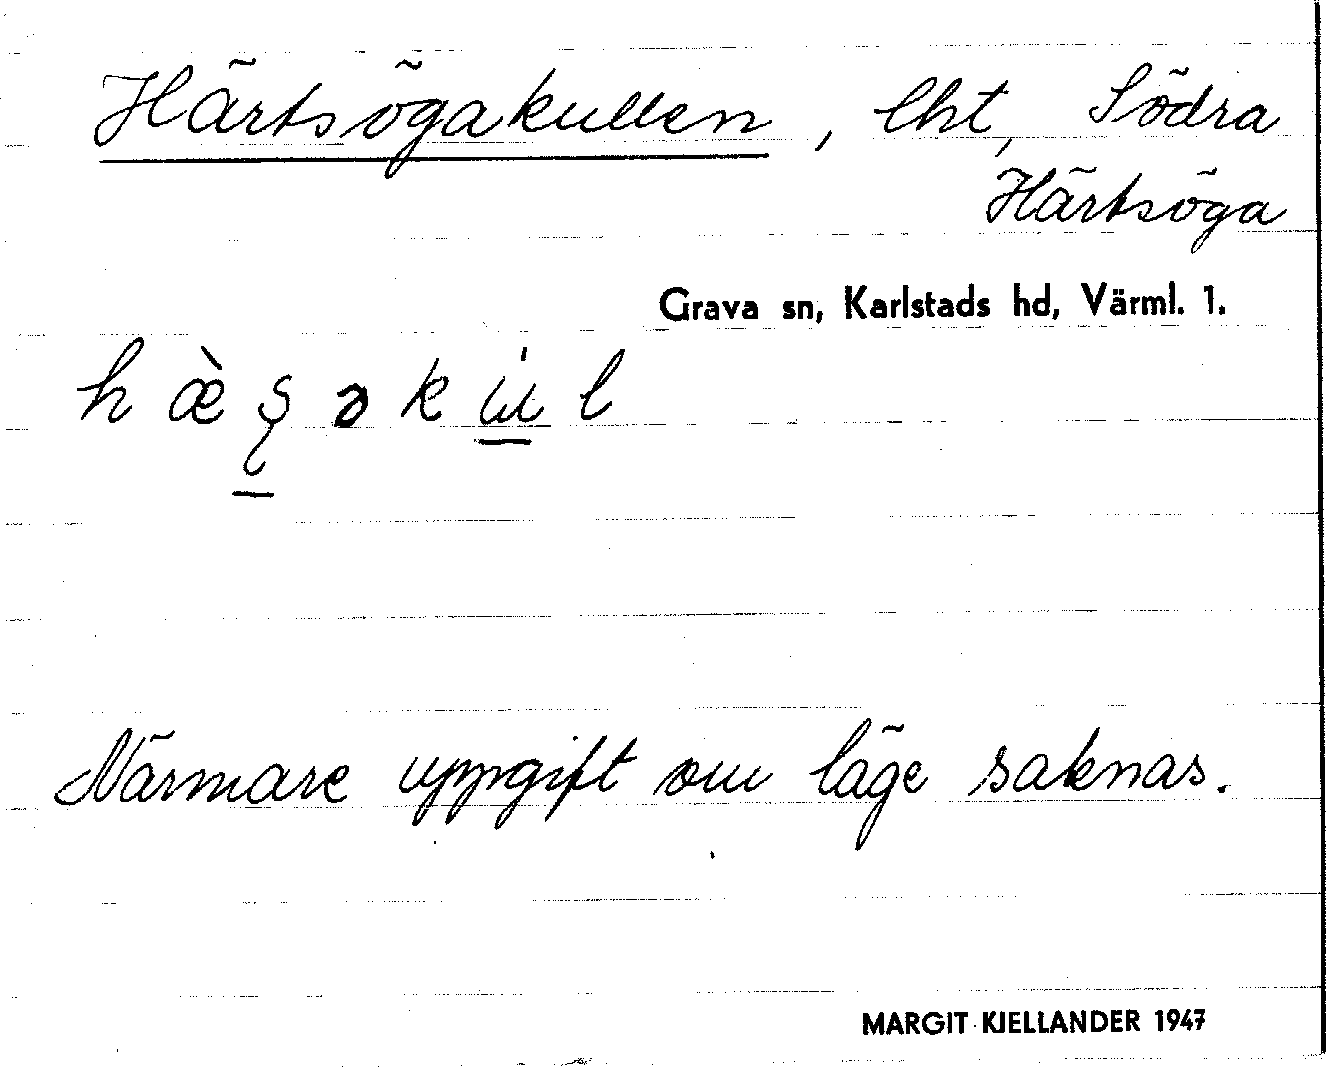 Härtsögakullen, lht, Södra
Härtsöga
Grava sn, Karlstads hd, Värml. 1.
Närmare uppgift om läge saknas.
MARGIT KJELLANDER 1947